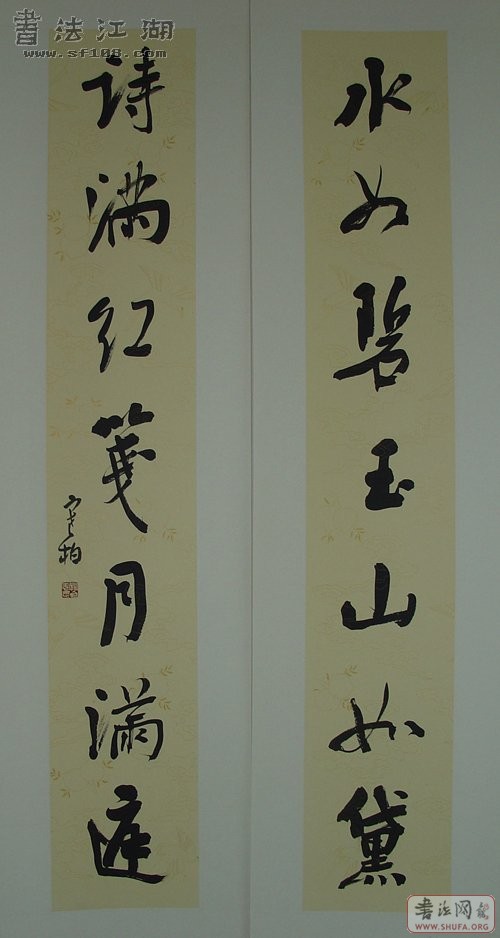 書法江湖
www.sf108.com
水如碧玉山如黛
詩滿紅箋月滿庭
書法网
WWW.SHUFA.ORG